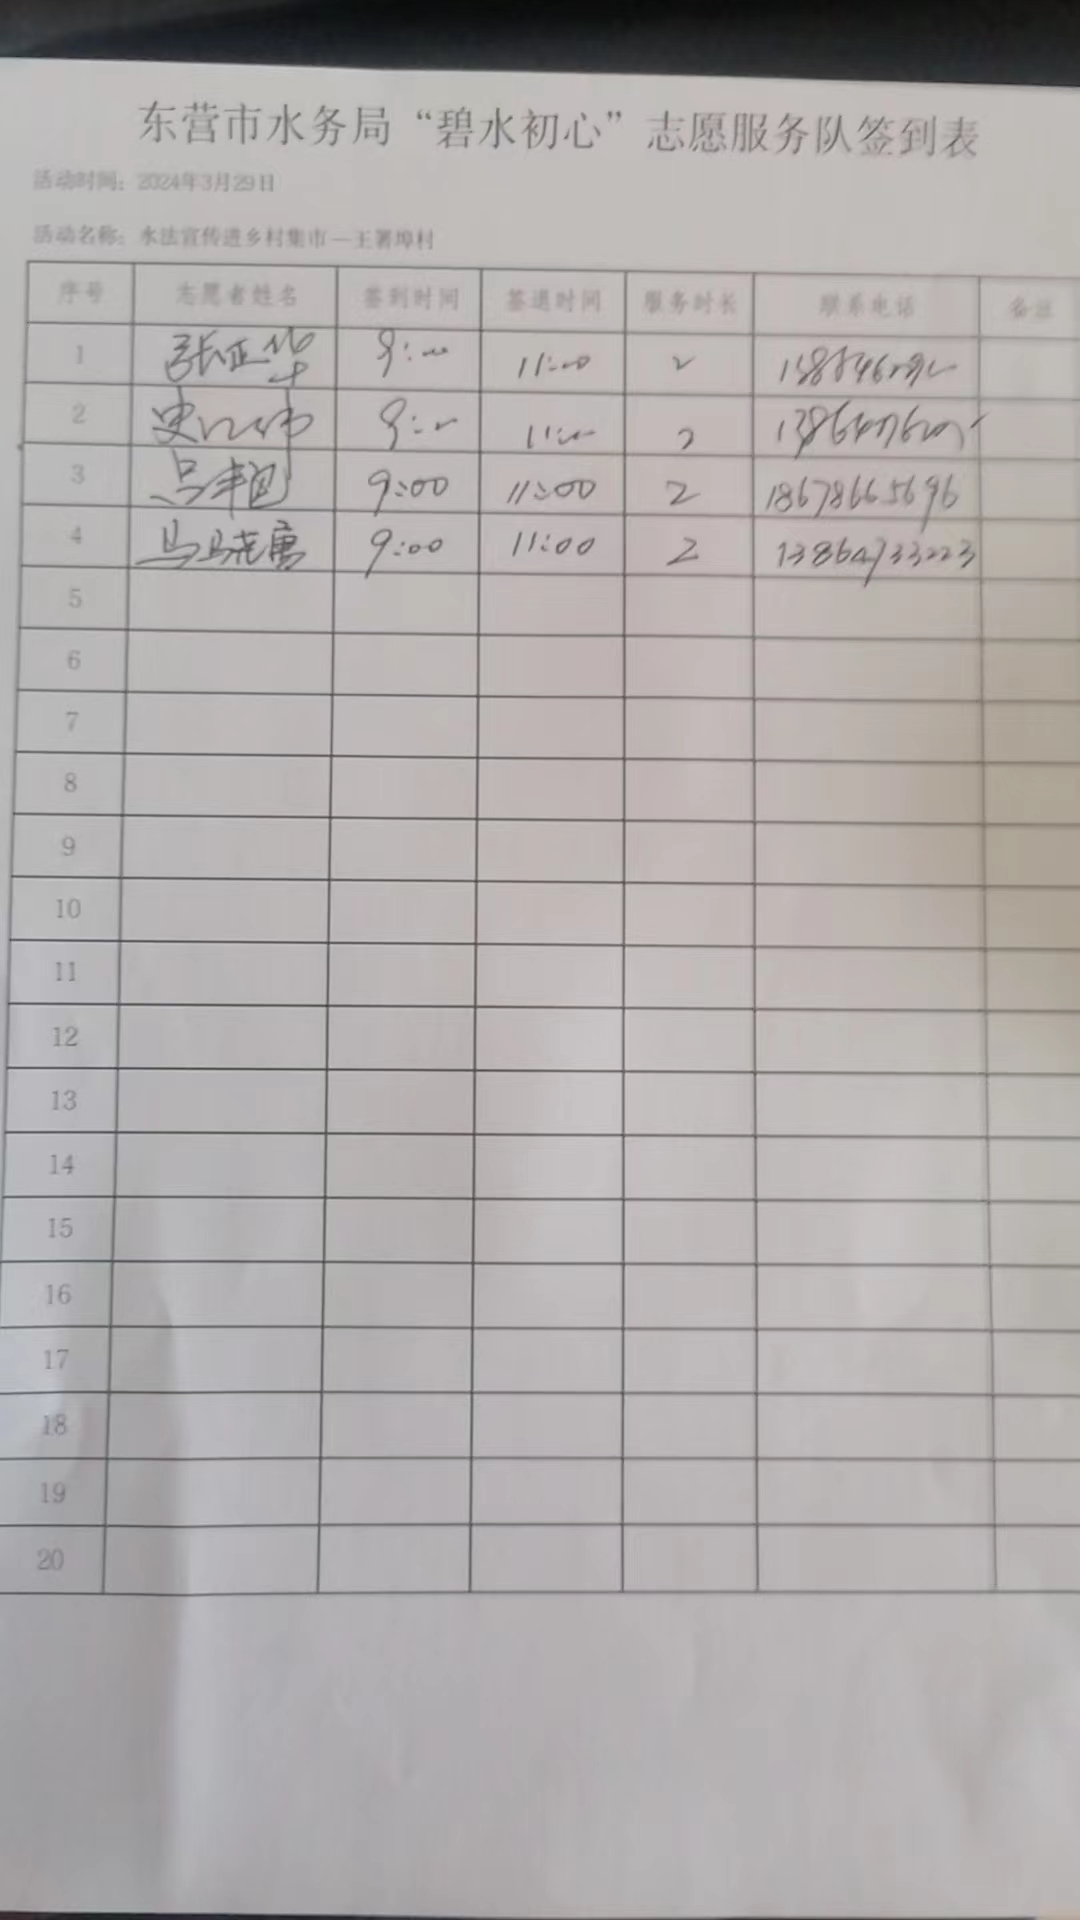 东营市水务局“碧水初心”志愿服务队签到表
活动时间：2024年3月29日
活动名称：水法宣传进乡村集市—王署埠村
序号 志愿者姓名 签到时间 签退时间 服务时长 联系电话 备注
1 张正华 9:00 11:00 2
2 9:00 11:00 2
3 9:00 11:00 2 18678665696
4 9:00 11:00 2 13864733223
5
6
7
8
9
10
11
12
13
14
15
16
17
18
19
20